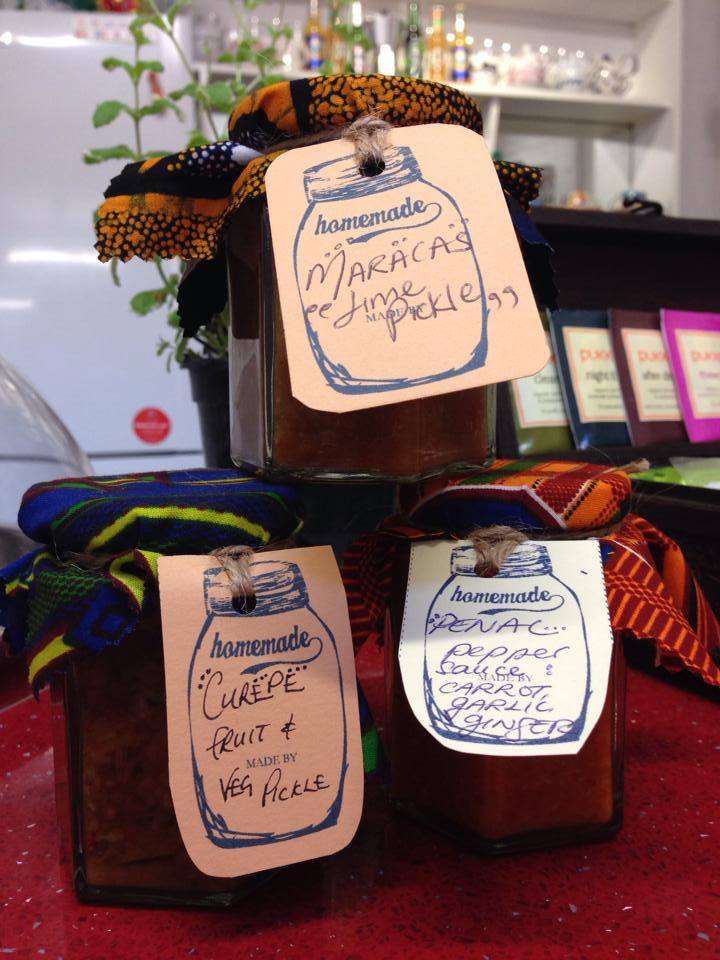 homemade
MARACAS
"Lime
MADE BY
Pickle"
pukka
night
pukka
after
pukka
homemade
"CUREPE"
FRUIT &
MADE BY
VEG PICKLE
homemade
"PENAL...
PEPPER
SAUCE:
MADE BY
CARROT,
GARLIC
GINGER